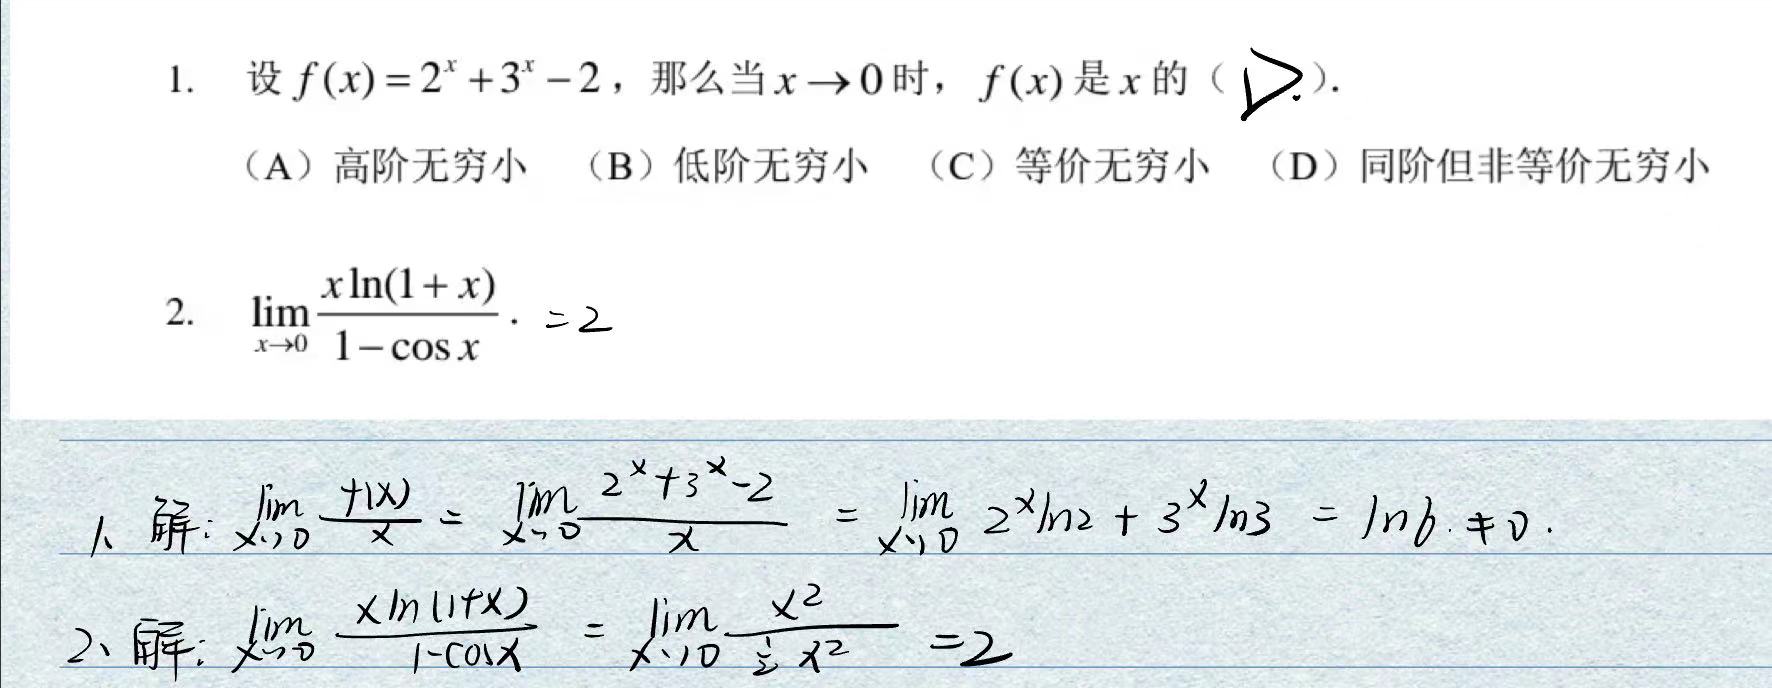 1. 设 f(x) = 2^x + 3^x − 2，那么当 x → 0 时，f(x) 是 x 的（ D. ）.
（A）高阶无穷小 （B）低阶无穷小 （C）等价无穷小 （D）同阶但非等价无穷小
2. lim_{x→0} \frac{x ln(1 + x)}{1 − cos x} . = 2
1、解: lim_{x→0} \frac{f(x)}{x} = lim_{x→0} \frac{2^x + 3^x − 2}{x} = lim_{x→0} 2^x ln2 + 3^x ln3 = ln6. ≠ 0.
2、解: lim_{x→0} \frac{x ln(1+x)}{1−cosx} = lim_{x→0} \frac{x^2}{\frac{1}{2} x^2} = 2